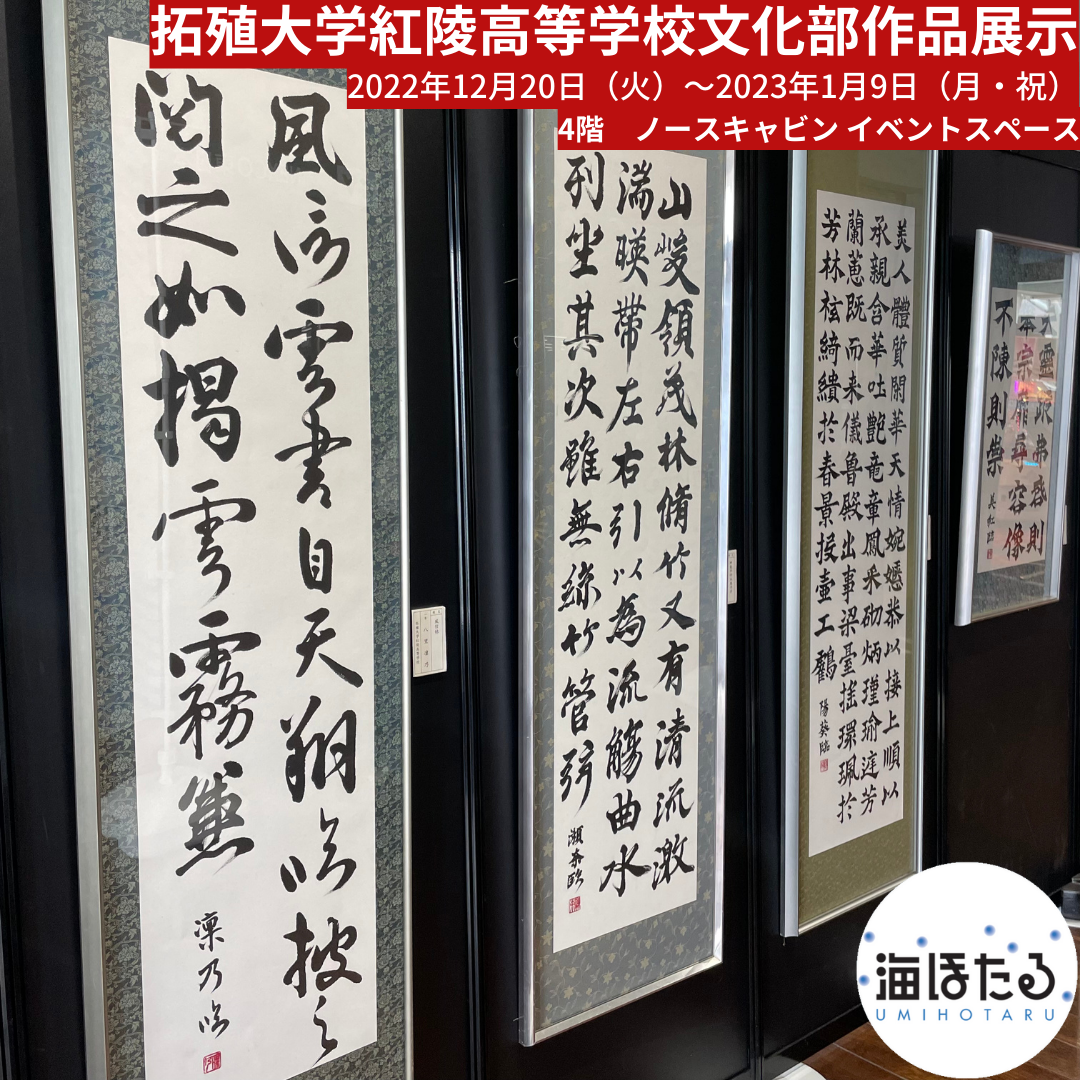 拓殖大学紅陵高等学校文化部作品展示
2022年12月20日（火）～2023年1月9日（月・祝）
4階　ノースキャビン イベントスペース
風信雲書自天翔臨披之
閲之如掲雲霧兼
凛乃臨
山峻領茂林脩竹又有清流激
湍暎帶左右引以為流觴曲水
列坐其次雖無絲竹管弦
美人體質閑華天情婉嫕恭以接上順以
承親含華吐艶竜章鳳采砌炳瑾瑜庭芳
蘭蕙既而来儀魯殿出事梁臺搖環珮於
芳林袨綺繢於春景投壺工鶴
陽葵臨
靈 弗 則
宗靡尋容像
不陳則崇
海ほたる
UMIHOTARU